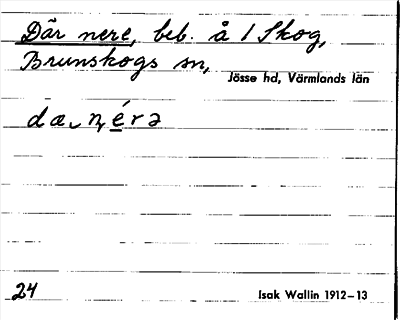 Där nere, beb. å 1 Skog,
Brunskogs sn,
Jösse hd, Värmlands län
dæ⌣ n̨é̱rə
24
Isak Wallin 1912–13